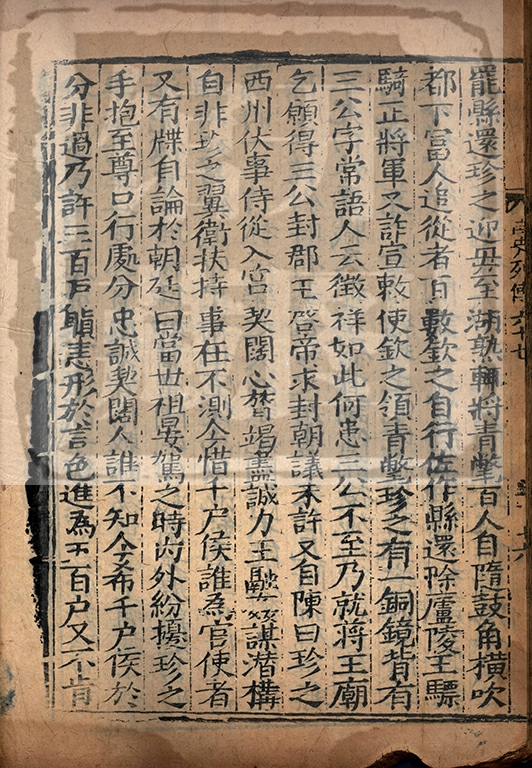 罷縣還珍之迎母至湖熟輒將青氅百人自隨鼓角橫吹
都下富人追從者百數欽之自行佐作縣還除廬陵王驃
騎正將軍又詐宣敕使欽之領青氅珍之有一銅鏡背有
三公字常語人云徵祥如此何患三公不至乃就將王廟
乞願得三公封郡王啓帝求封朝議未許又自陳曰珍之
西州伏事侍從入宮契闊心膂竭盡誠力王融姦謀潛構
自非珍之翼衛扶持事在不測今惜千户侯誰爲官使者
又有牒自論於朝廷曰當世祖晏駕之時內外紛擾珍之
手抱至尊口行處分忠誠契闊人誰不知今希千户侯於
分非過乃許三百户瞋恚形於言色進爲五百户又不肯
南史列傳六十七
六